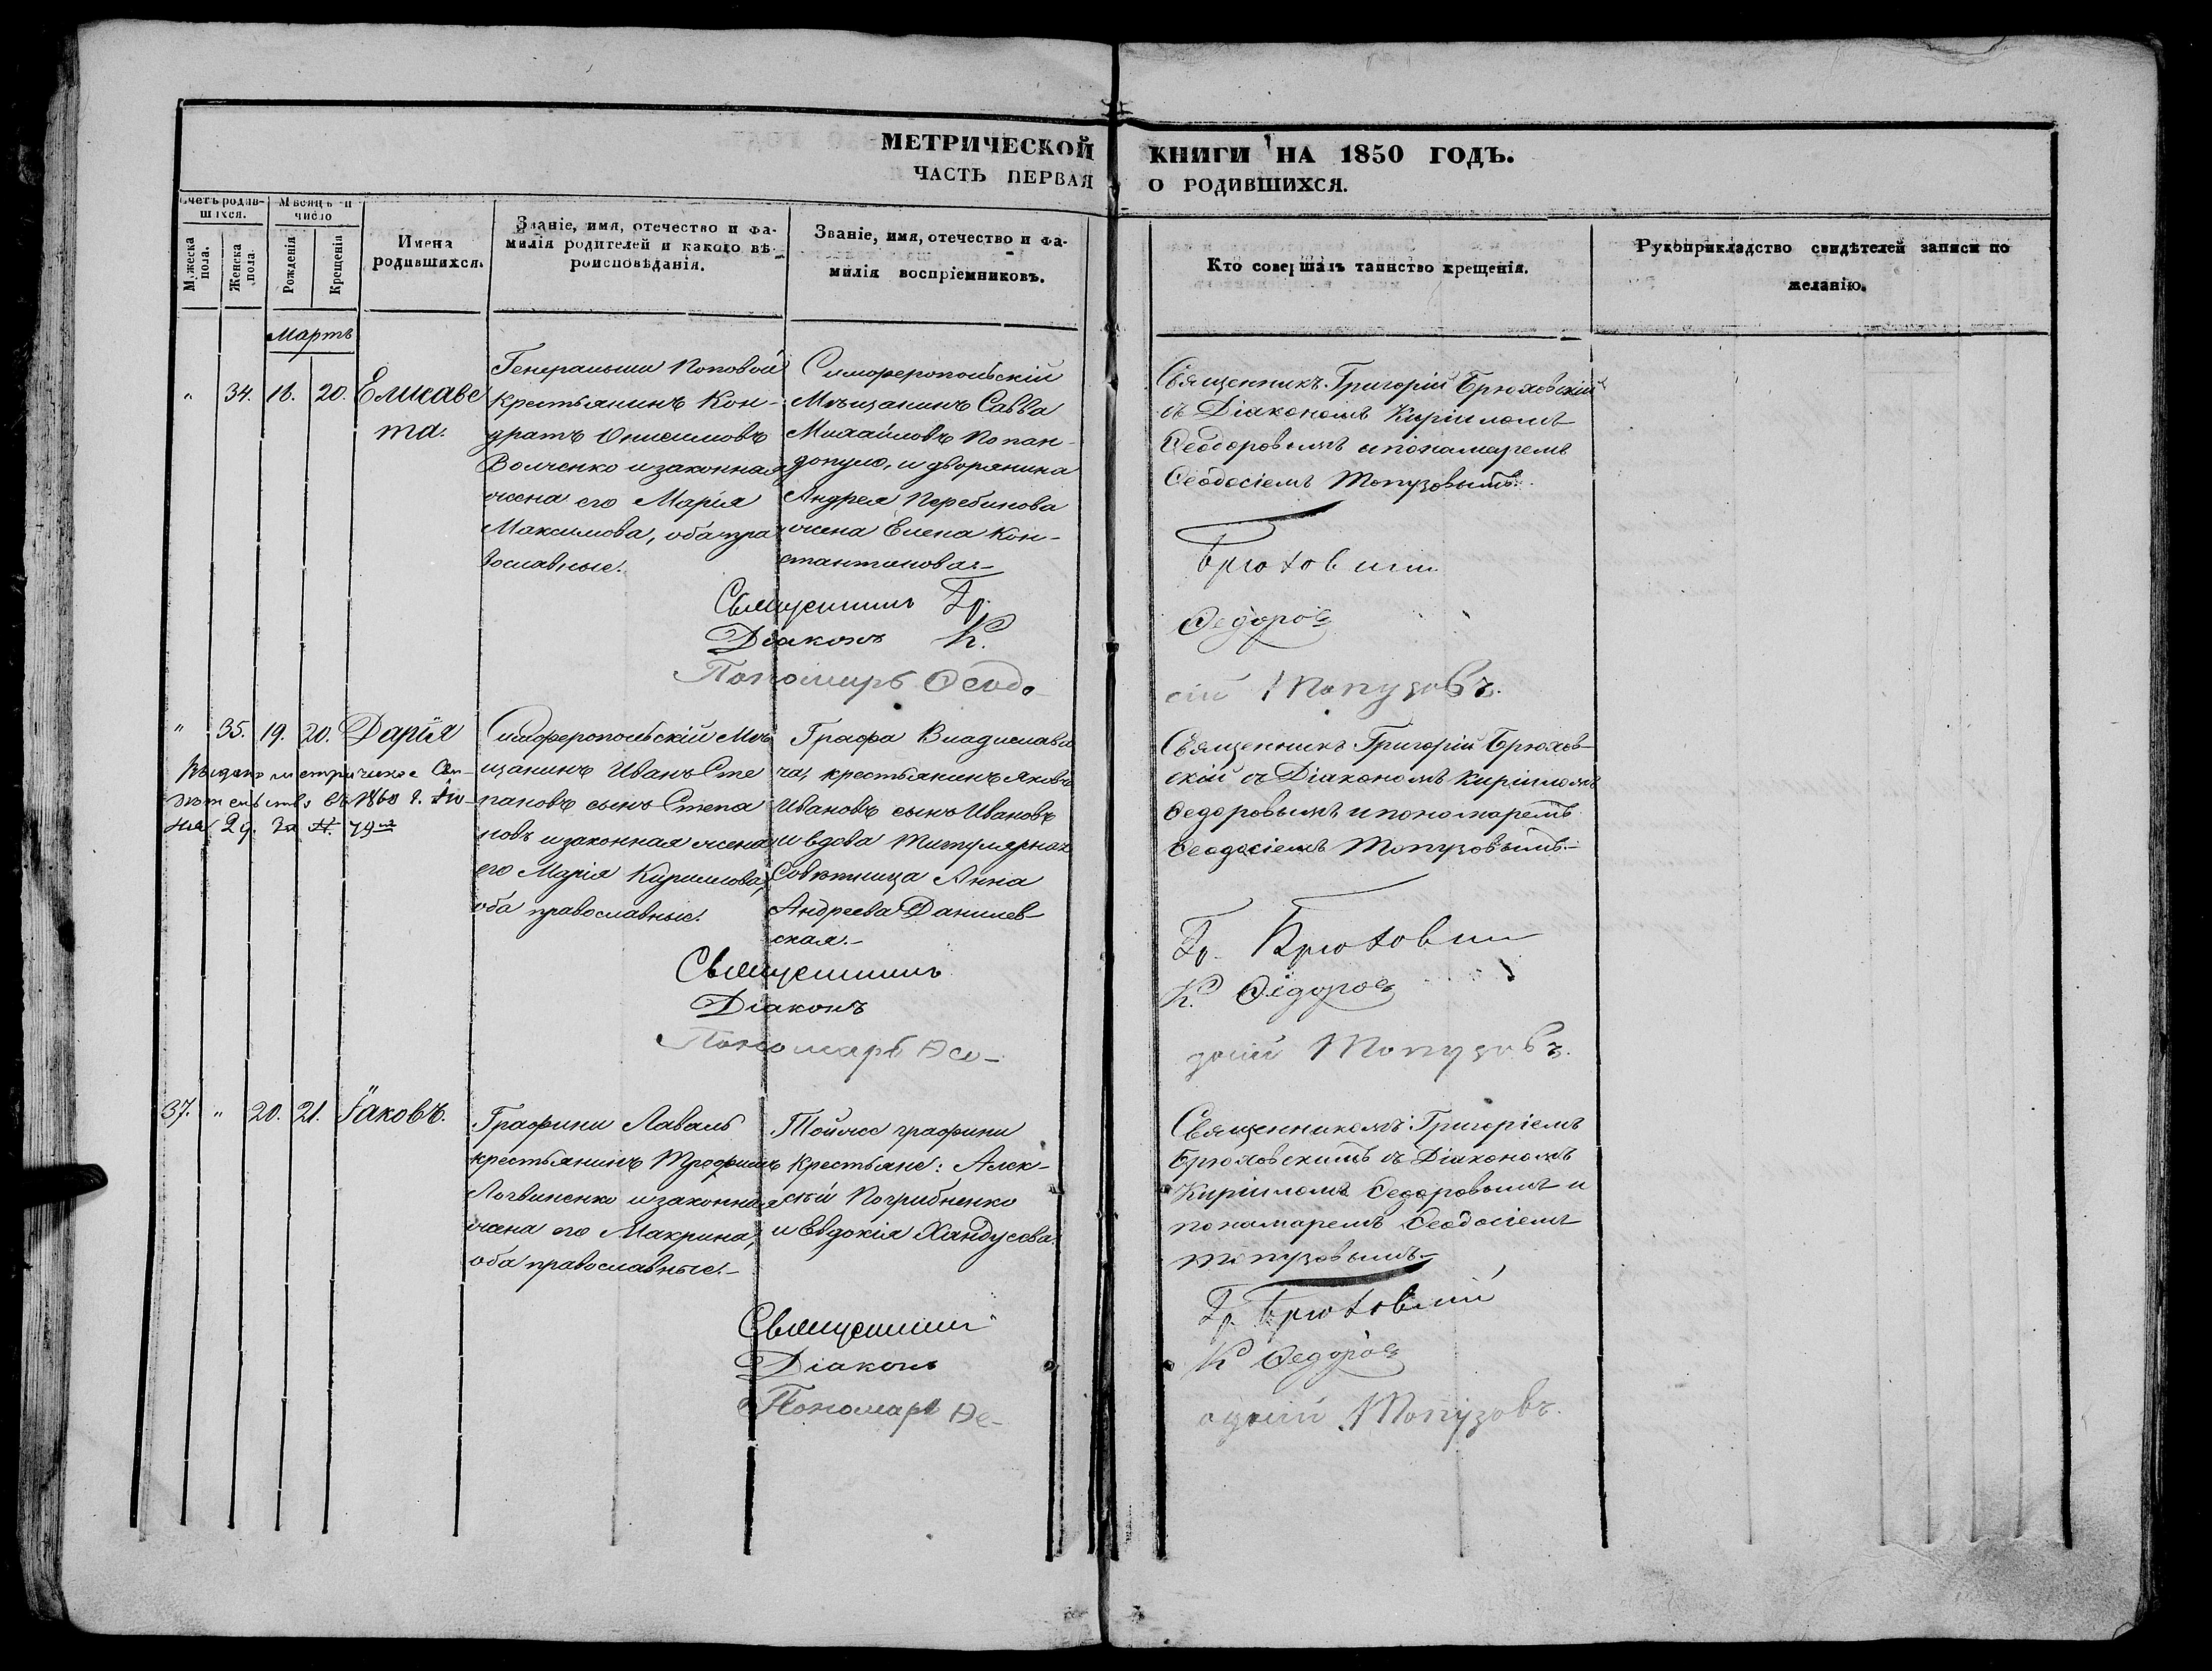 МЕТРИЧЕСКОЙ КНИГИ НА 1850 ГОДЪ.
ЧАСТЬ ПЕРВАЯ О РОДИВШИХСЯ.
Счетъ родив-
шихся.
Мужеска пола.
Женска пола.
Мѣсяцъ и
число
Рожденія
Крещенія
Имена
родившихся.
Званіе, имя, отечество и фа-
милія родителей и какого вѣ-
роисповѣданія.
Званіе, имя, отечество и фа-
милія воспріемниковъ.
Кто совершалъ таинство крещенія.
Рукоприкладство свидѣтелей записи по
желанію.
Мартъ
" 34. 18. 20. Елисаве
та.
Генеральши Поповой
крестьянинъ Кон-
дратъ Онисимовъ
Волченко и законная
жена его Марія
Максимова, оба пра
вославные.
Симферопольскій
Мѣщанинъ Савва
Михайловъ Попан-
допуло, и дворянина
Андрея Перебинова
жена Елена Кон-
стантинова.-
Священникъ Григорій Брюховскій
съ Діакономъ Кирилломъ
Ѳеодоровымъ и пономаремъ
Ѳеодосіемъ Топузовымъ.
Священникъ Гр. Брюховскій
Діаконъ К. Ѳедоровъ
Пономарь Ѳеодо-
сій Топузовъ.
" 35. 19. 20. Дарія
Выдано метрическое Сви-
дѣтельство въ 1860 г. Ію-
ня 29. за №. 79мъ
Симферопольскій Мѣ
щанинъ Иванъ Сте
пановъ сынъ Степа
новъ и законная жена
его Марія Кириллова,
оба православные.
Графа Владислави
ча, крестьянинъ Яковъ
Ивановъ сынъ Ивановъ
и вдова Титулярная
Совѣтница Анна
Андреева Данилев-
ская.-
Священникъ Григорій Брюхов-
скій съ Діакономъ Кирилломъ
Ѳедоровымъ и пономаремъ
Ѳеодосіемъ Топузовымъ.-
Священникъ Гр. Брюховскій
Діаконъ К. Ѳедоровъ
Пономарь Ѳео-
досій Топузовъ.
37. " 20. 21. Іаковъ.
Графини Лаваль
крестьянинъ Трофимъ
Логвиненко и законная
жена его Макрина,
оба православные.-
Тойже графини
крестьяне: Алек-
сѣй Погрибненко
и Евдокія Хандусева.
Священникомъ Григоріемъ
Брюховскимъ съ Діакономъ
Кирилломъ Ѳедоровымъ и
пономаремъ Ѳеодосіемъ
Топузовымъ.-
Священникъ Гр. Брюховскій
Діаконъ К. Ѳедоровъ
Пономарь Ѳе-
одосій Топузовъ.